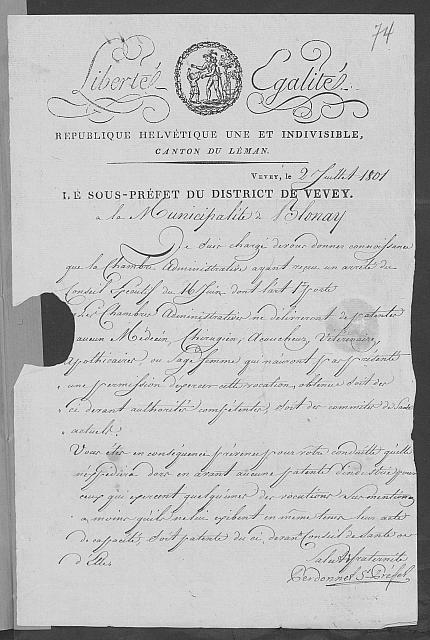 74
Liberté Egalité
REPUBLIQUE HELVÉTIQUE UNE ET INDIVISIBLE,
CANTON DU LÉMAN.
VEVEY, le 2 Juillet 1801
LE SOUS-PRÉFET DU DISTRICT DE VEVEY.
a la Municipalité de Blonay
Je suis chargé de vous donner connoissance
que la Chambre Administrative ayant reçu un arreté du
Conseil Executif du 16 Juin dont l'art 1 porte
Les Chambres Administratives ne délivreront de patentes
aucun Médecin, Chirugien, Acoucheur, Véterinaire,
apothicaires ou Sage femme qui n'auront pas présenté
une permission d'exercer cette vocation, obtenue soit des
ci devant authorités compétentes, soit des comités de Santé
actuels.
Vous êtes en conséquence prévenus pour votre conduitte qu'elle
n'expediera dors en avant aucune patente d'industrie pour
ceux qui exercent quelqu'unes des vocations sus mention
a moins qu'ils ne lui exibent en même tems leur acte
de capacité, soit patente du ci devant Conseil de Santé ou
d'Elles.
Salut & fraternité
Perdonnet S. Préfet